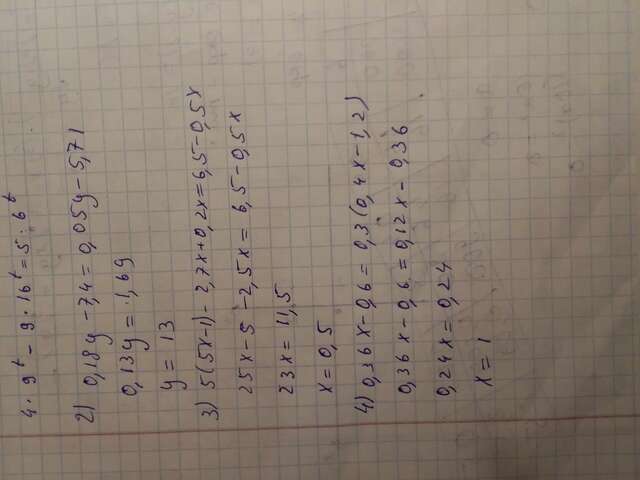 4· 9^t - 9·16^t = 5·6^t
2) 0,18y - 7,4 = 0,05y - 5,71
0,13y = 1,69
y = 13
3) 5(5x-1) - 2,7x + 0,2x = 6,5 - 0,5x
25x - 5 - 2,5x = 6,5 - 0,5x
23x = 11,5
x = 0,5
4) 0,36x - 0,6 = 0,3(0,4x - 1,2)
0,36x - 0,6 = 0,12x - 0,36
0,24x = 0,24
x = 1